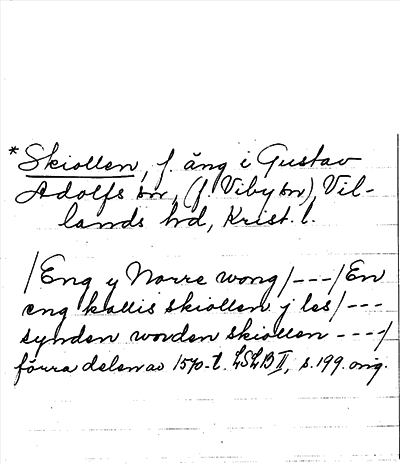 *Skiollen, f. äng i Gustav
Adolfs sn, (f. Viby sn) Vil-
lands hd, Krist. l.
/Eng y Norre wong/---/En
eng kallis skiollen j les/---
synden worden skiollen ----/
förra delen av 1570-t. LSLB II, s. 199. orig.